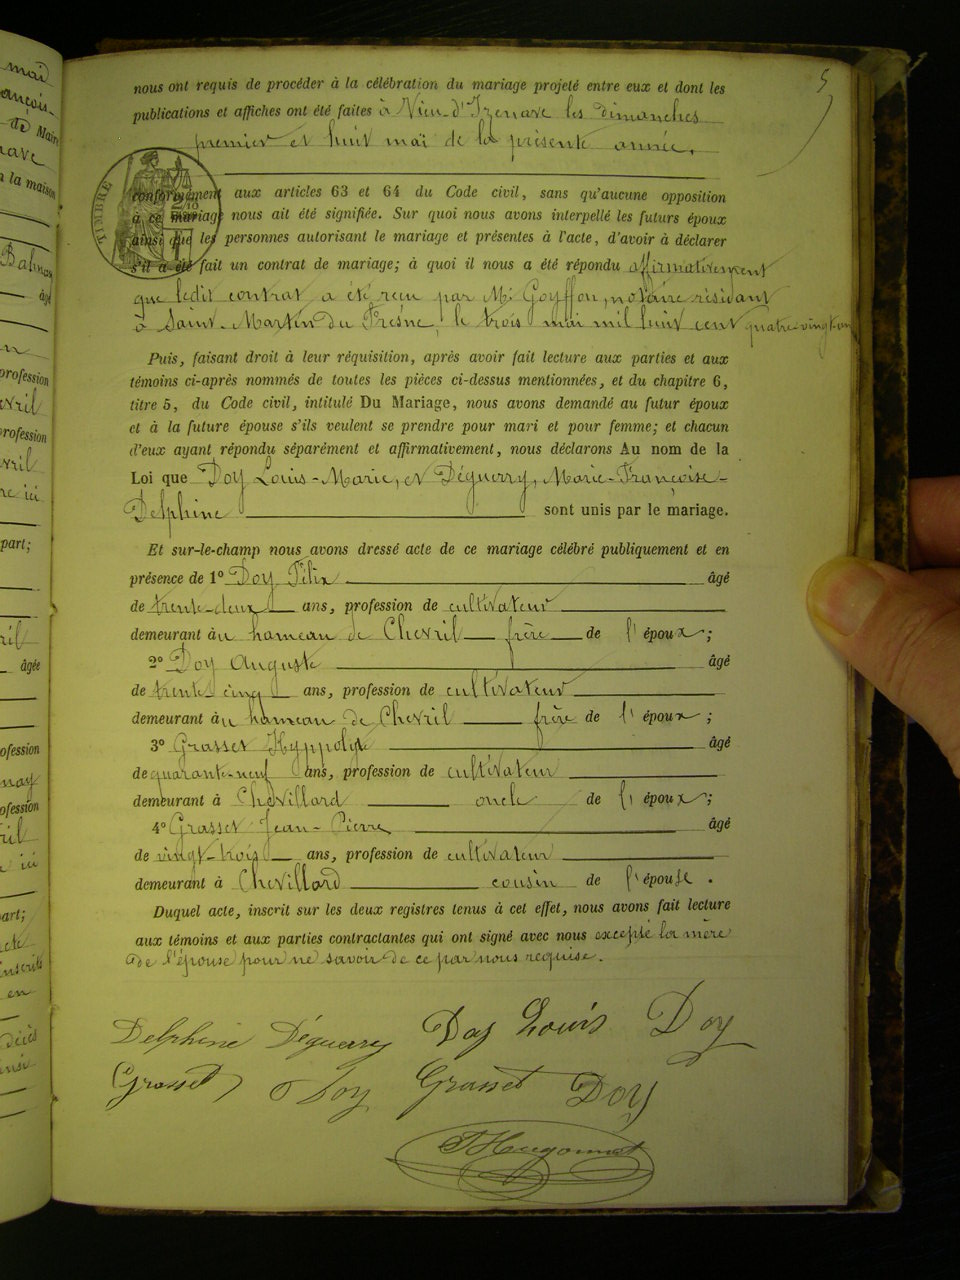 mai
ançois
de Maire
nave
à la maison
Balmas
âgé
profession
avril
profession
avril
re ici
part;
ril
âgée
ofession
nay
ofession
ril
ici
art;
acte
inscrits
en
décès
5
nous ont requis de procéder à la célébration du mariage projeté entre eux et dont les
publications et affiches ont été faites à Vieu-d'Izenave les dimanches
premier et huit mai de la présente année,
TIMBRE
conformément aux articles 63 et 64 du Code civil, sans qu'aucune opposition
à ce mariage nous ait été signifiée. Sur quoi nous avons interpellé les futurs époux
ainsi que les personnes autorisant le mariage et présentes à l'acte, d'avoir à déclarer
s'il a été fait un contrat de mariage; à quoi il nous a été répondu affirmativement
que ledit contrat a été reçu par Me Goyffon, notaire résidant
à Saint-Martin du Fresne, le trois mai mil huit cent quatre-vingt-un
Puis, faisant droit à leur réquisition, après avoir fait lecture aux parties et aux
témoins ci-après nommés de toutes les pièces ci-dessus mentionnées, et du chapitre 6,
titre 5, du Code civil, intitulé Du Mariage, nous avons demandé au futur époux
et à la future épouse s'ils veulent se prendre pour mari et pour femme; et chacun
d'eux ayant répondu séparément et affirmativement, nous déclarons Au nom de la
Loi que Doy Louis-Marie, et Déguerry, Marie-Françoise-
Delphine sont unis par le mariage.
Et sur-le-champ nous avons dressé acte de ce mariage célébré publiquement et en
présence de 1º Doy Félix âgé
de trente-deux ans, profession de cultivateur
demeurant àu hameau de Chevril frère de l'époux;
2º Doy Auguste âgé
de trente cinq ans, profession de cultivateur
demeurant àu hameau de Chevril frère de l'époux;
3º Grasset Hyppolyte âgé
de quarante-neuf ans, profession de cultivateur
demeurant à Chevillard oncle de l'époux;
4º Grasset Jean-Pierre, âgé
de vingt-trois ans, profession de cultivateur
demeurant à Chevillard cousin de l'épouse.
Duquel acte, inscrit sur les deux registres tenus à cet effet, nous avons fait lecture
aux témoins et aux parties contractantes qui ont signé avec nous excepté la mère
de l'épouse pour ne savoir de ce par nous requise.
Delphine Déguerry Doy Louis Doy
Grasset Doy Grasset Doy
Hugonnet